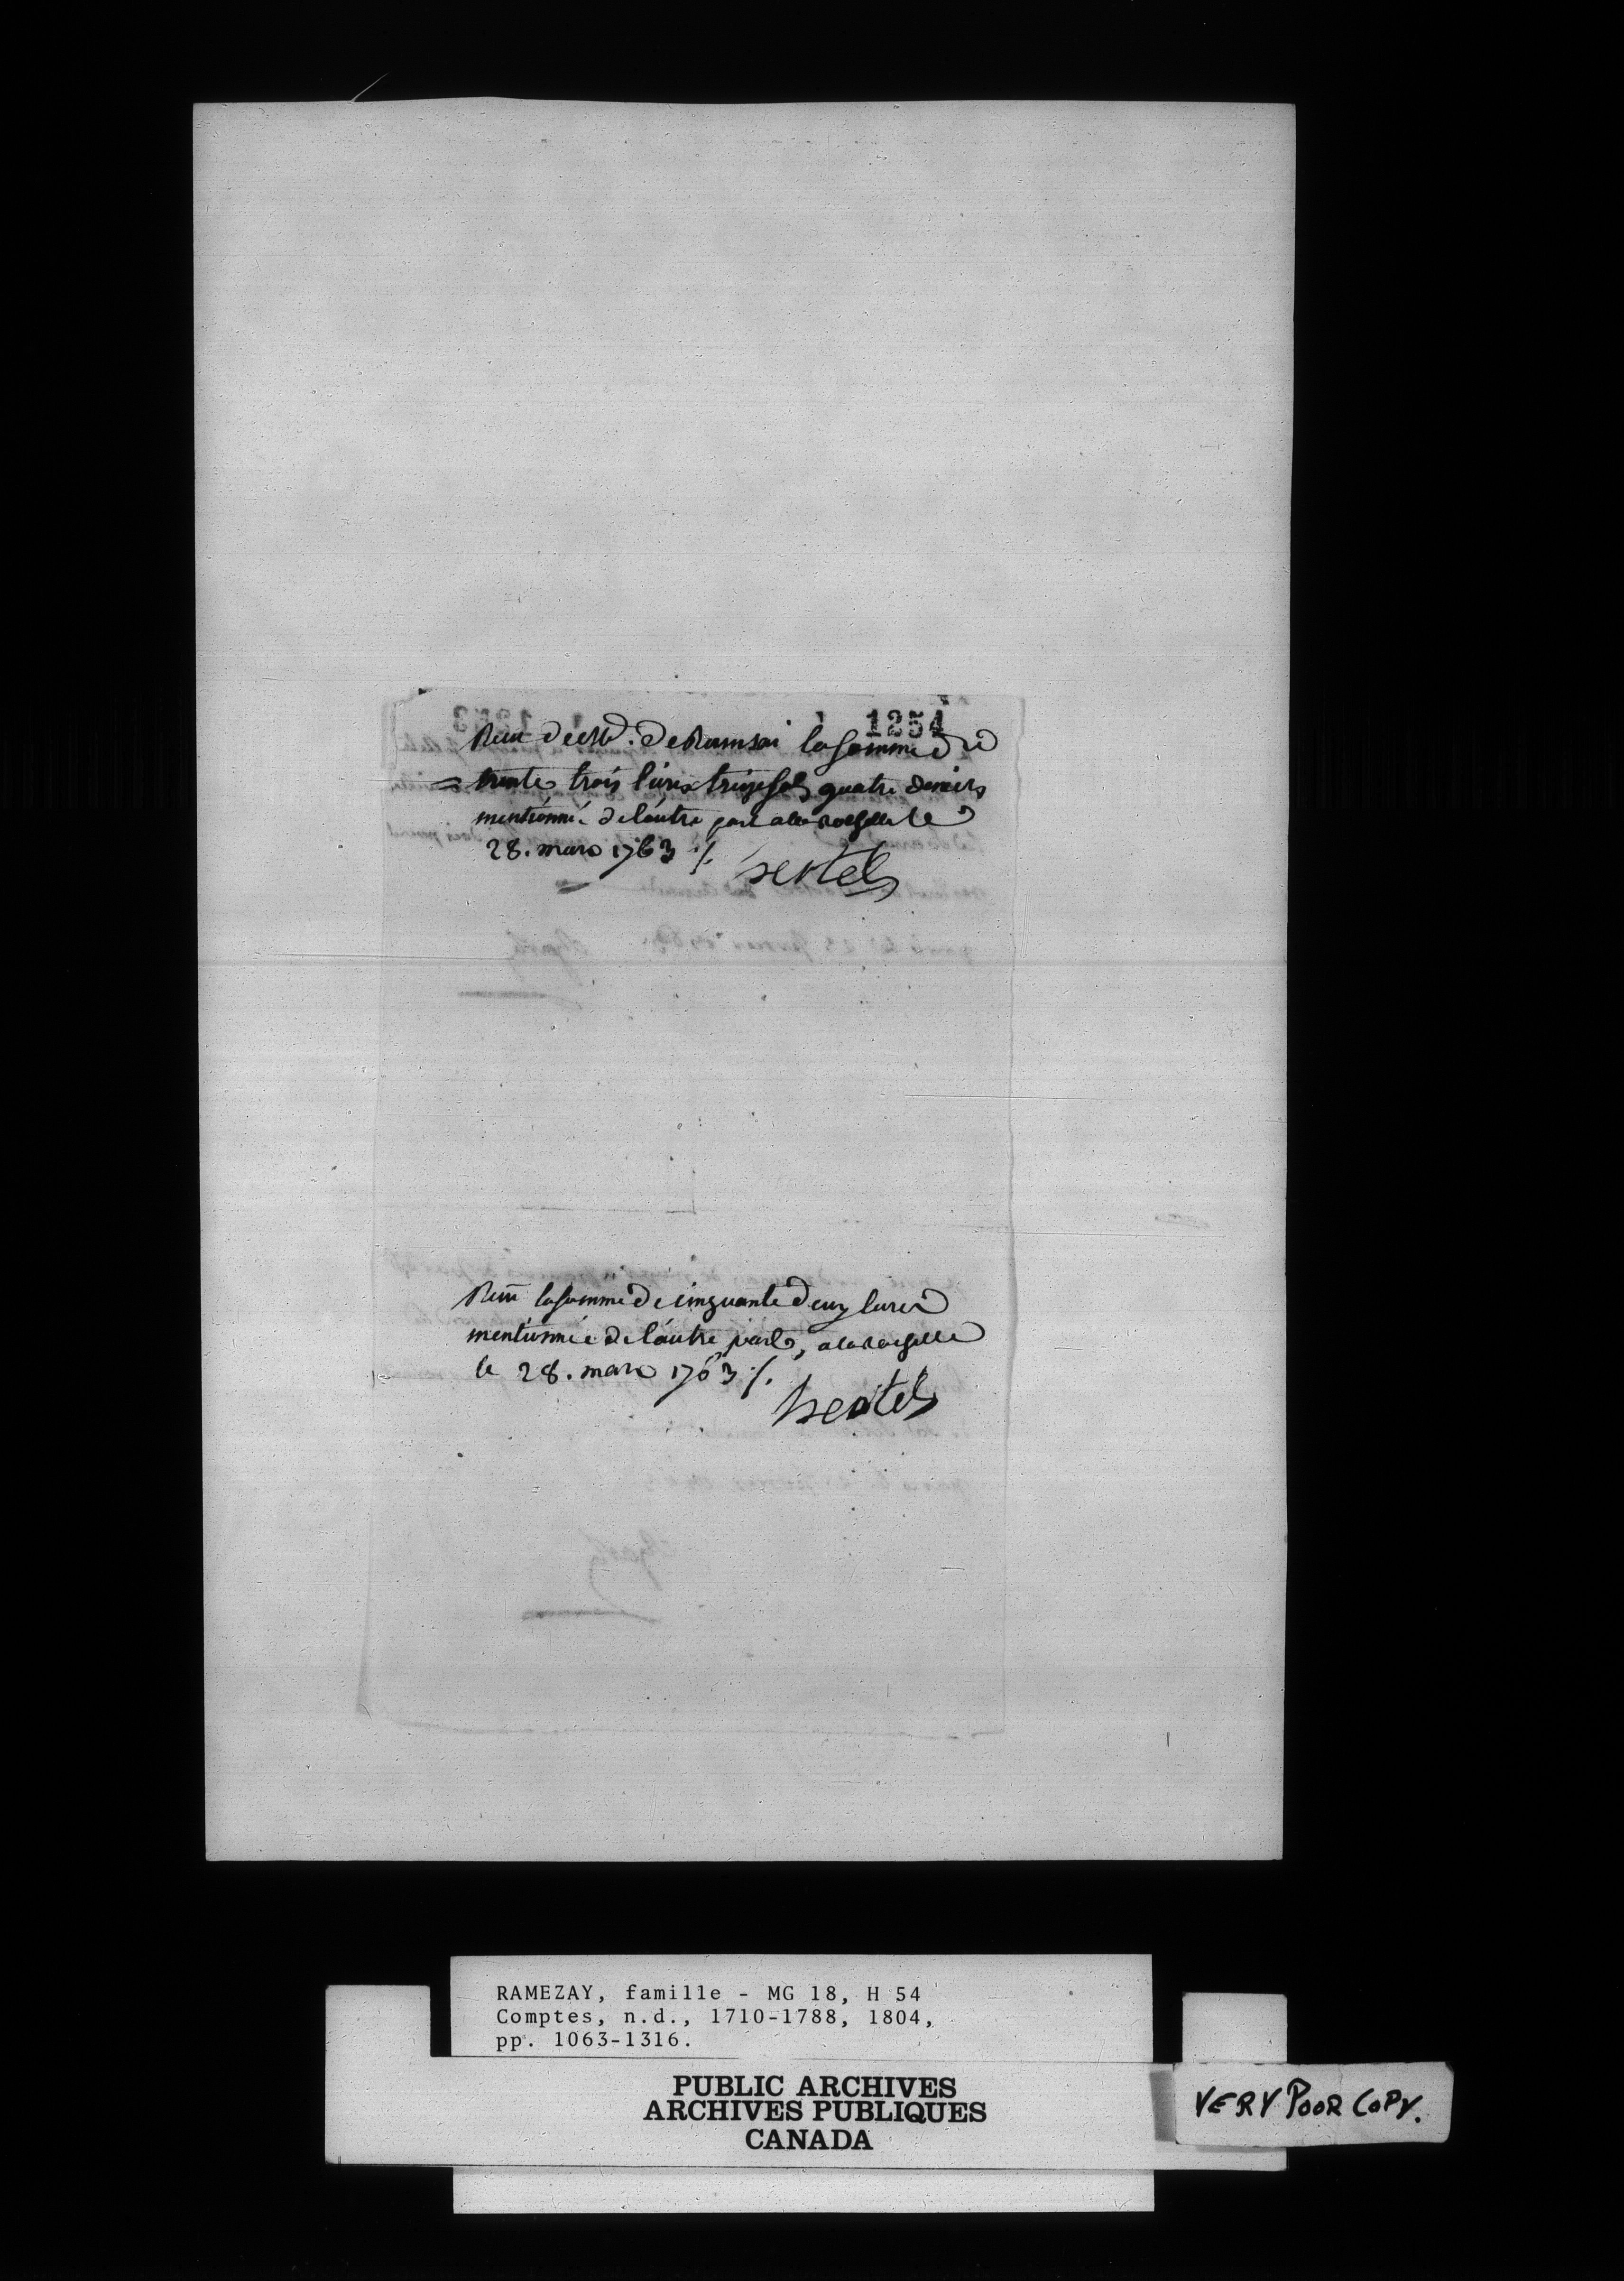 1254
Reçu de M. de Ramsai la somme de
trente trois livres treize sols quatre deniers
mentionné de l'autre part a la rochelle le
28. mars 1763 ./.
hertel
Reçu la somme de cinquante deux livres
mentionnée de l'autre part, a la rochelle
le 28. mars 1763 ./.
hertel
RAMEZAY, famille - MG 18, H 54
Comptes, n.d., 1710-1788, 1804,
pp. 1063-1316.
PUBLIC ARCHIVES
ARCHIVES PUBLIQUES
CANADA
VERY POOR COPY.